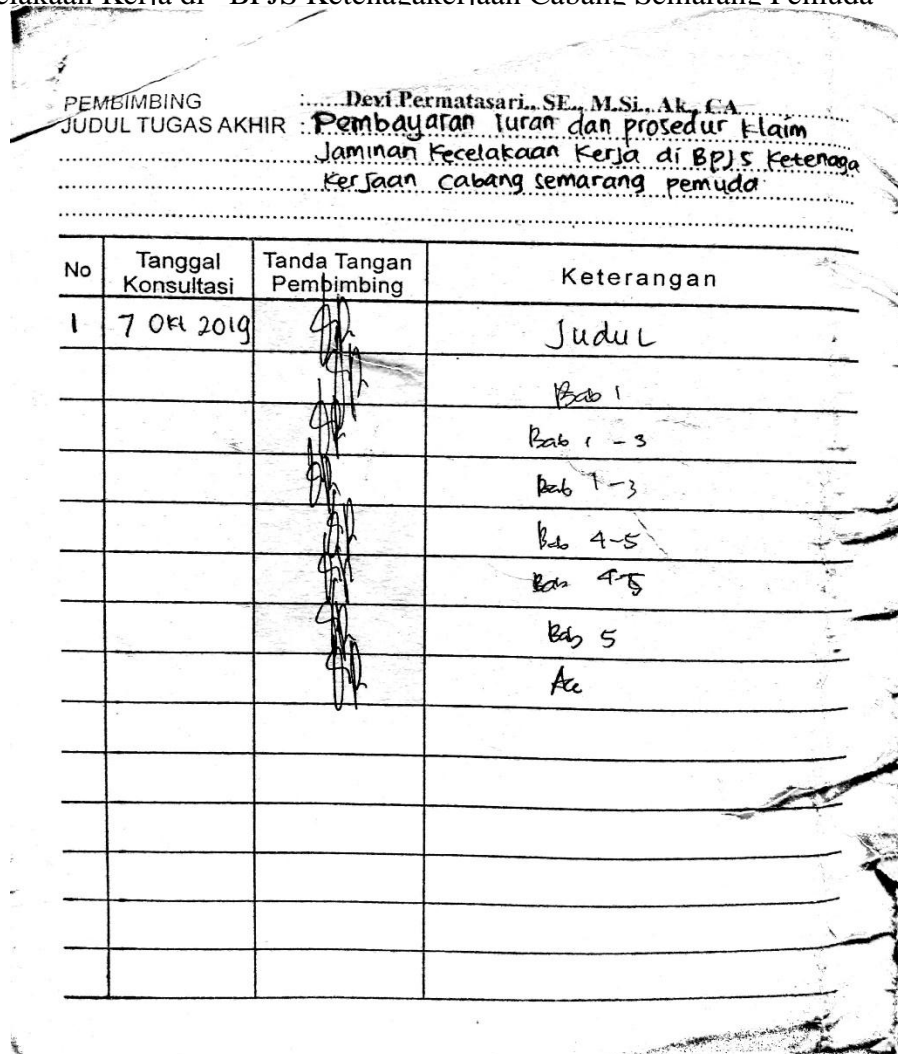 Kecelakaan Kerja di BPJS Ketenagakerjaan Cabang Semarang Pemuda
PEMBIMBING :......Devi Permatasari., SE., M.Si., Ak., CA
JUDUL TUGAS AKHIR : Pembayaran Iuran dan prosedur klaim
Jaminan Kecelakaan Kerja di BPJS Ketenaga
Kerjaan Cabang Semarang pemuda
No Tanggal Konsultasi Tanda Tangan Pembimbing Keterangan
1 7 Okt 2019 Judul
Bab 1
Bab 1 - 3
Bab 1-3
Bab 4-5
Bab 4-5
Bab 5
Acc